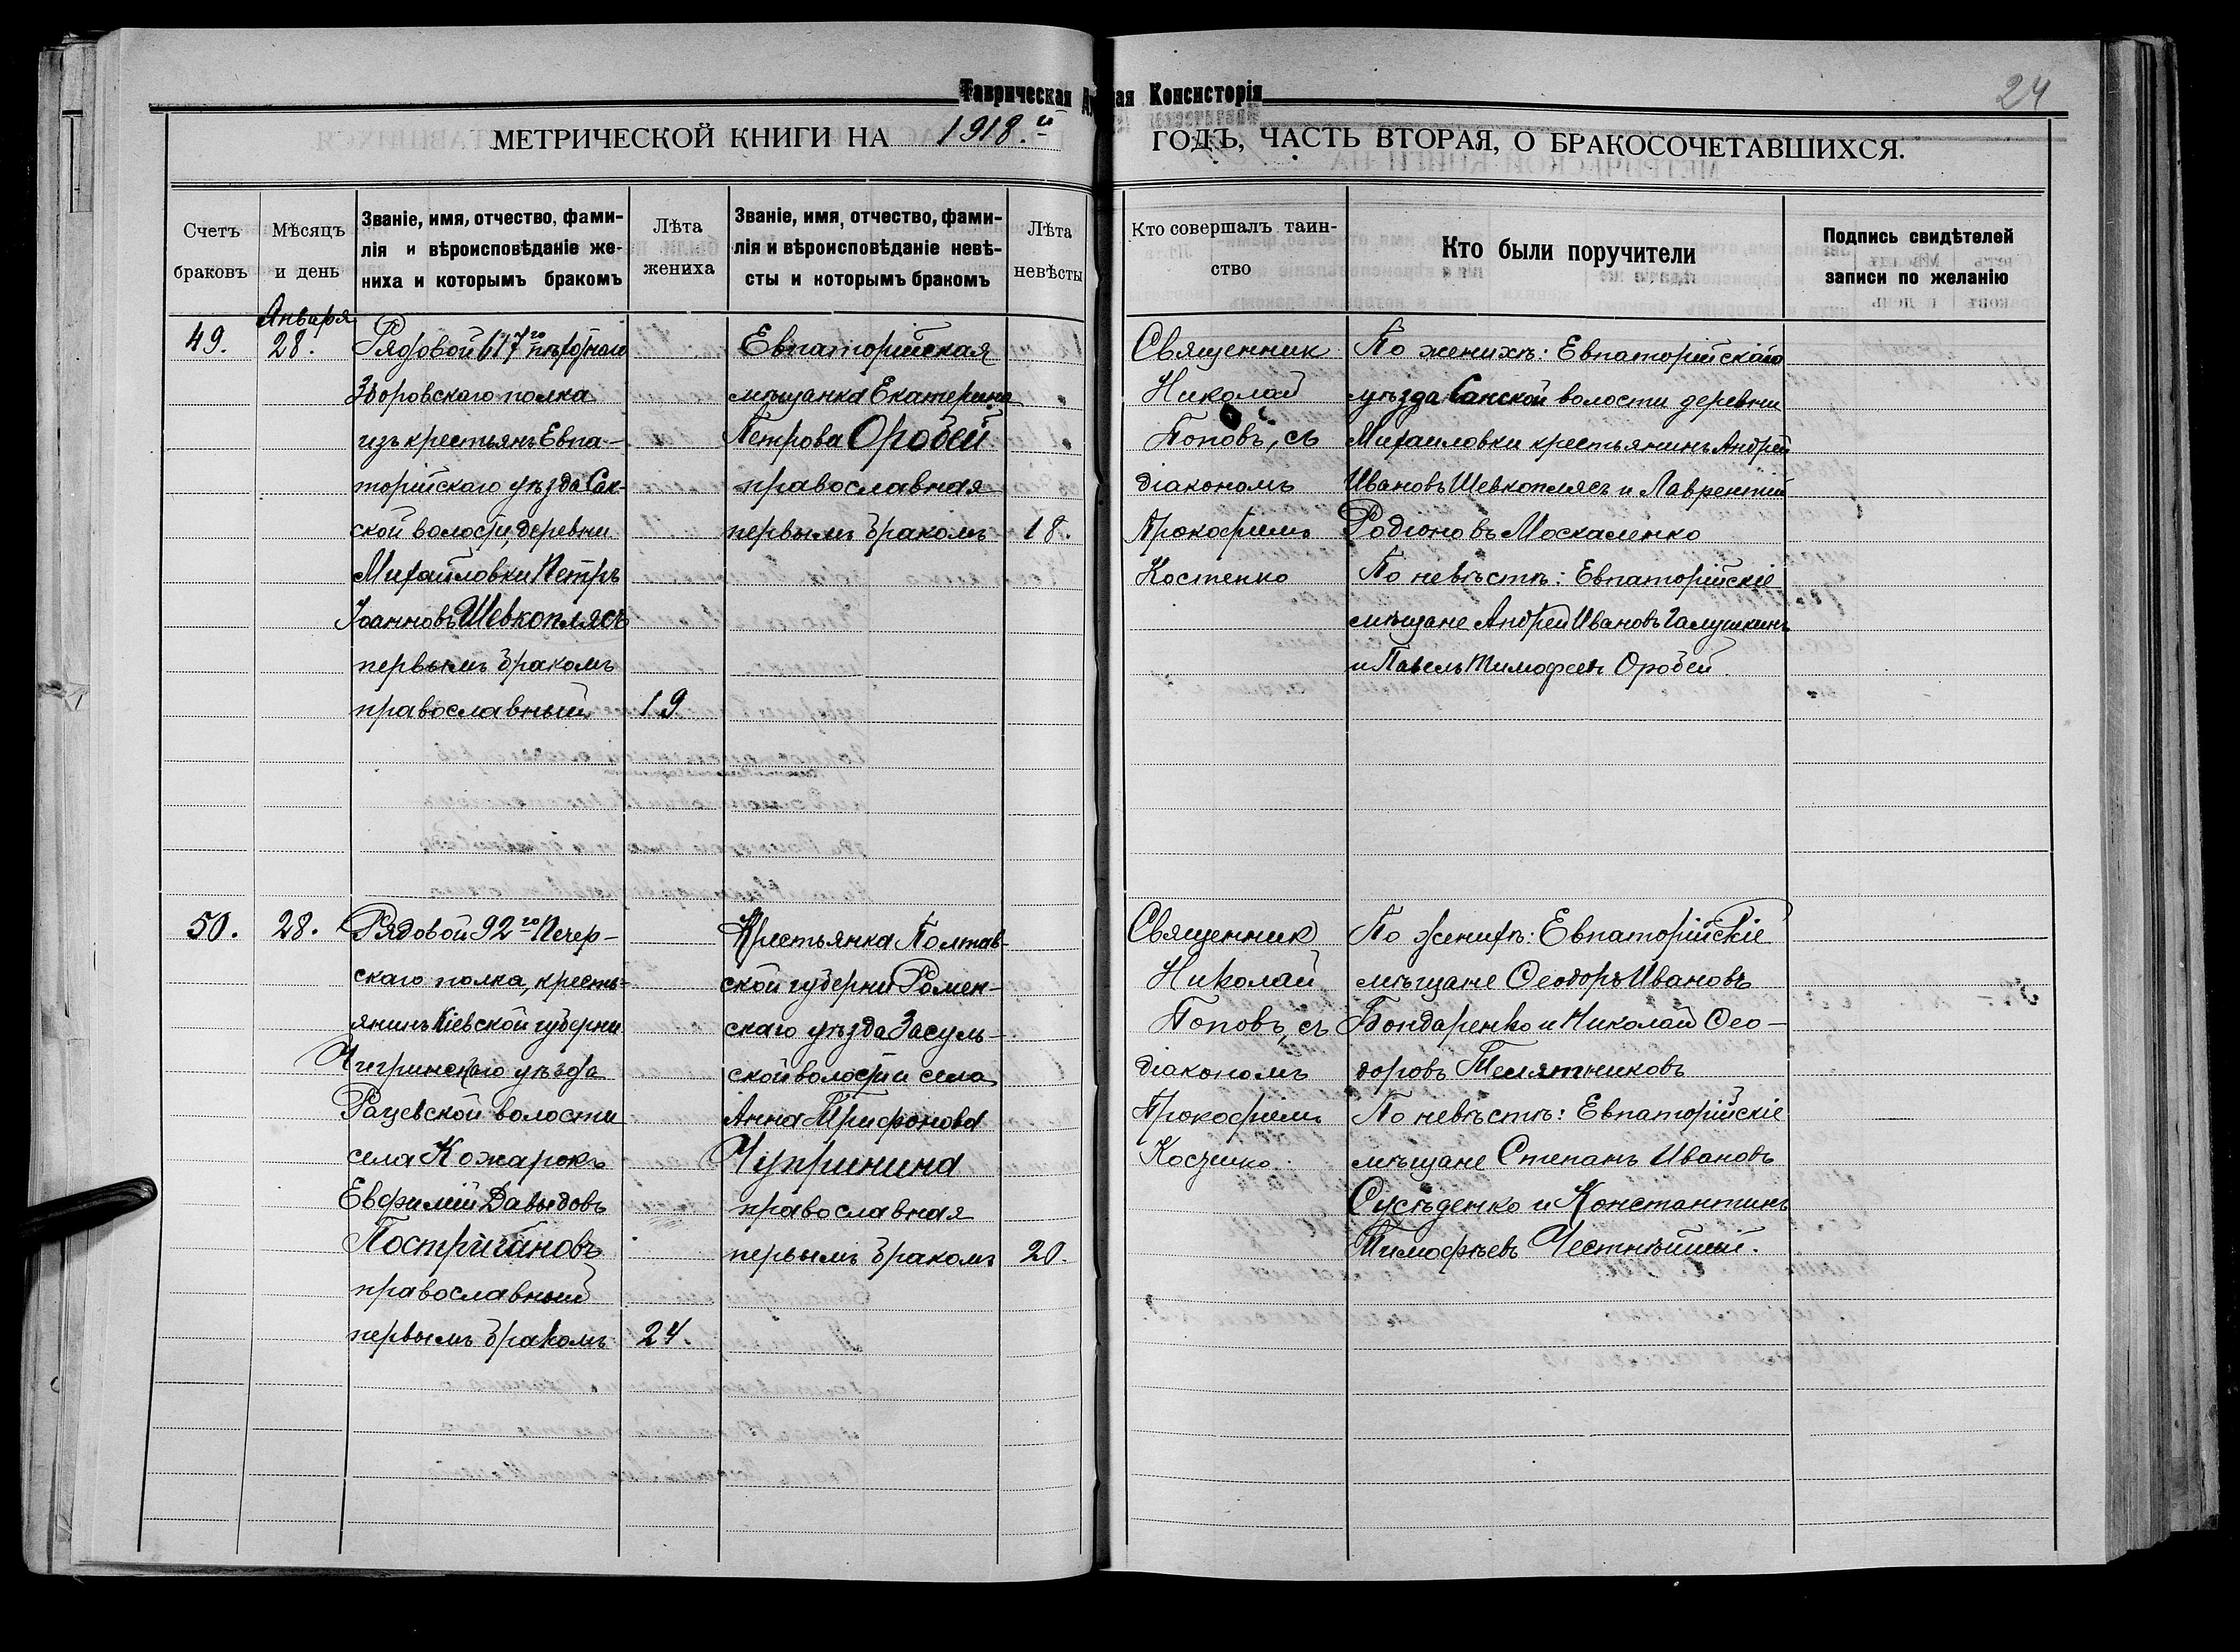 Таврическая
ая Консисторія
24
МЕТРИЧЕСКОЙ КНИГИ НА 1918.й
ГОДЪ, ЧАСТЬ ВТОРАЯ, О БРАКОСОЧЕТАВШИХСЯ.
Счетъ
браковъ
Мѣсяцъ
и день
Званіе, имя, отчество, фами-
лія и вѣроисповѣданіе же-
ниха и которымъ бракомъ
Лѣта
жениха
Званіе, имя, отчество, фами-
лія и вѣроисповѣданіе невѣ-
сты и которымъ бракомъ
Лѣта
невѣсты
Кто совершалъ таин-
ство
Кто были поручители
Подпись свидѣтелей
записи по желанію
49.
Января
28.
Рядовой 617го пѣхотнаго
Зборовскаго полка
изъ крестьянъ Евпа-
торійскаго уѣзда Сак-
ской волости, деревни
Михайловки Петръ
Іоанновъ Шевкоплясъ
первымъ бракомъ
православный
19
Евпаторійская
мѣщанка Екатерина
Петрова Оробей
православная
первымъ бракомъ
18.
Священник
Николай
Поповъ, съ
діакономъ
Прокофіемъ
Костенко
По женихѣ: Евпаторійскаго
уѣзда Сакской волости деревни
Михайловки крестьянинъ Андрей
Ивановъ Шевкоплясъ и Лаврентій
Родіоновъ Москаленко
По невѣстѣ: Евпаторійскіе
мѣщане Андрей Ивановъ Галушкинъ
и Павелъ Тимофеевъ Оробей.
50.
28.
Рядовой 92го Печер-
скаго полка, кресть-
янинъ Кіевской губерни
Чигринскаго уѣзда
Рацевской волости
села Кожарокъ
Евфимій Давыдовъ
Постригановъ
православный
первымъ бракомъ
24.
Крестьянка Полтав-
ской губерни Ромен-
скаго уѣзда Засуль-
ской волости села
Анна Трифонова
Чупринина
православная
первымъ бракомъ
20.
Священник
Николай
Поповъ, съ
діакономъ
Прокофіемъ
Костенко.
По женихѣ: Евпаторійскіе
мѣщане Ѳеодоръ Ивановъ
Бондаренко и Николай Ѳео-
доровъ Телятниковъ
По невѣстѣ: Евпаторійскіе
мѣщане Степанъ Ивановъ
Сусѣденко и Константинъ
Тимофѣевъ Честнѣйшій.